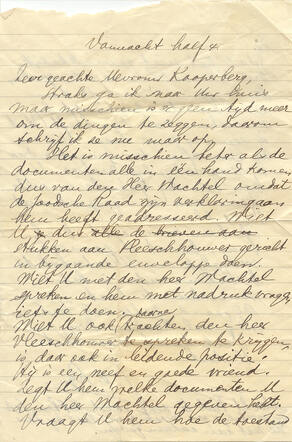 Vannacht half 4.
Zeer geachte Mevrouw Kooperberg,
Straks ga ik naar Uw huis
maar misschien is er geen tijd meer
om de dingen te zeggen, daarom
schrijf ik ze nu maar op.
Het is misschien beter als de
documenten alle in één hand komen,
dus van den Heer Wachtel omdat
de Joodsche Raad zijn verklaring aan
hem heeft geadresseerd. Wilt
U dus alle de brieven aan
stukken aan Vleeschhouwer gericht
in bijgaande enveloppe doen.
Wilt U met den heer Wachtel
spreken en hem met nadruk vragen
iets te doen.
Wilt U ook trachten, den heer
Vleeschhouwer te spreken te krijgen,
is daar ook in leidende positie.
Hij is een neef en goede vriend.
Zegt U hem welke documenten U
den heer Wachtel gegeven hebt.
Vraagt U hem hoe de toestand